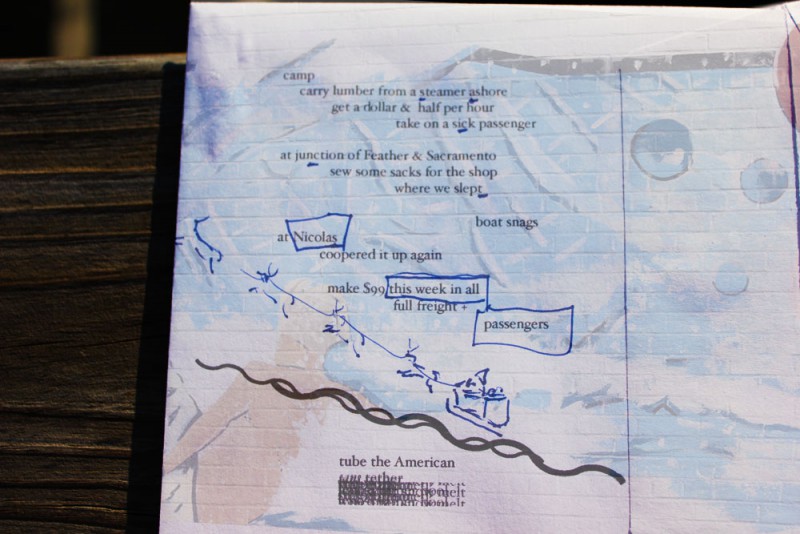 camp
carry lumber from a steamer ashore
get a dollar & half per hour
take on a sick passenger
at junction of Feather & Sacramento
sew some sacks for the shop
where we slept
boat snags
at Nicolas
coopered it up again
make $99 this week in all
full freight +
passengers
tube the American
tether